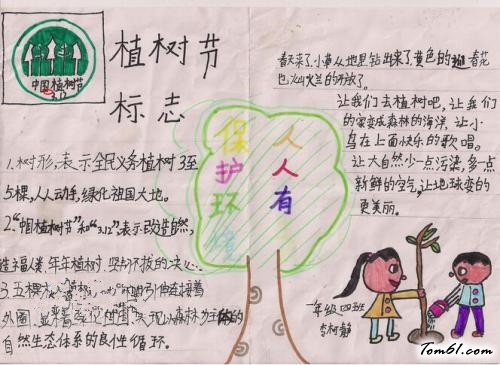 中国植树节
3.12
植树节
标志
1.树形,表示全民义务植树3至
5棵,人人动手,绿化祖国大地。
2."中国植树节"和"3.12"表示改造自然,
造福人类,年年植树,坚韧不拔的决心。
3.五棵
外圈,
自然生态体系的良性循环。
保护环境
人人有
春天来了,小草从地里钻出来了,黄色的迎春花
也火火兰的开放了。
让我们去植树吧,让我们
的家变成森林的海洋,让小
鸟在上面快乐的歌唱。
让大自然少一点污染,多一点
新鲜的空气,让地球变的
更美丽。
一年级四班
李柯静
Tom61.com